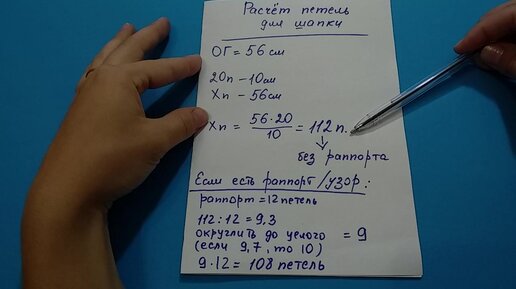 Расчёт петель
для шапки
ОГ = 56 см
20п – 10см
Хп – 56см
Хп = 56·20/10 = 112п.
↓
без раппорта
Если есть раппорт/узор:
раппорт = 12 петель
112 : 12 = 9,3
округлить до целого = 9
(если 9,7, то 10)
9·12 = 108 петель